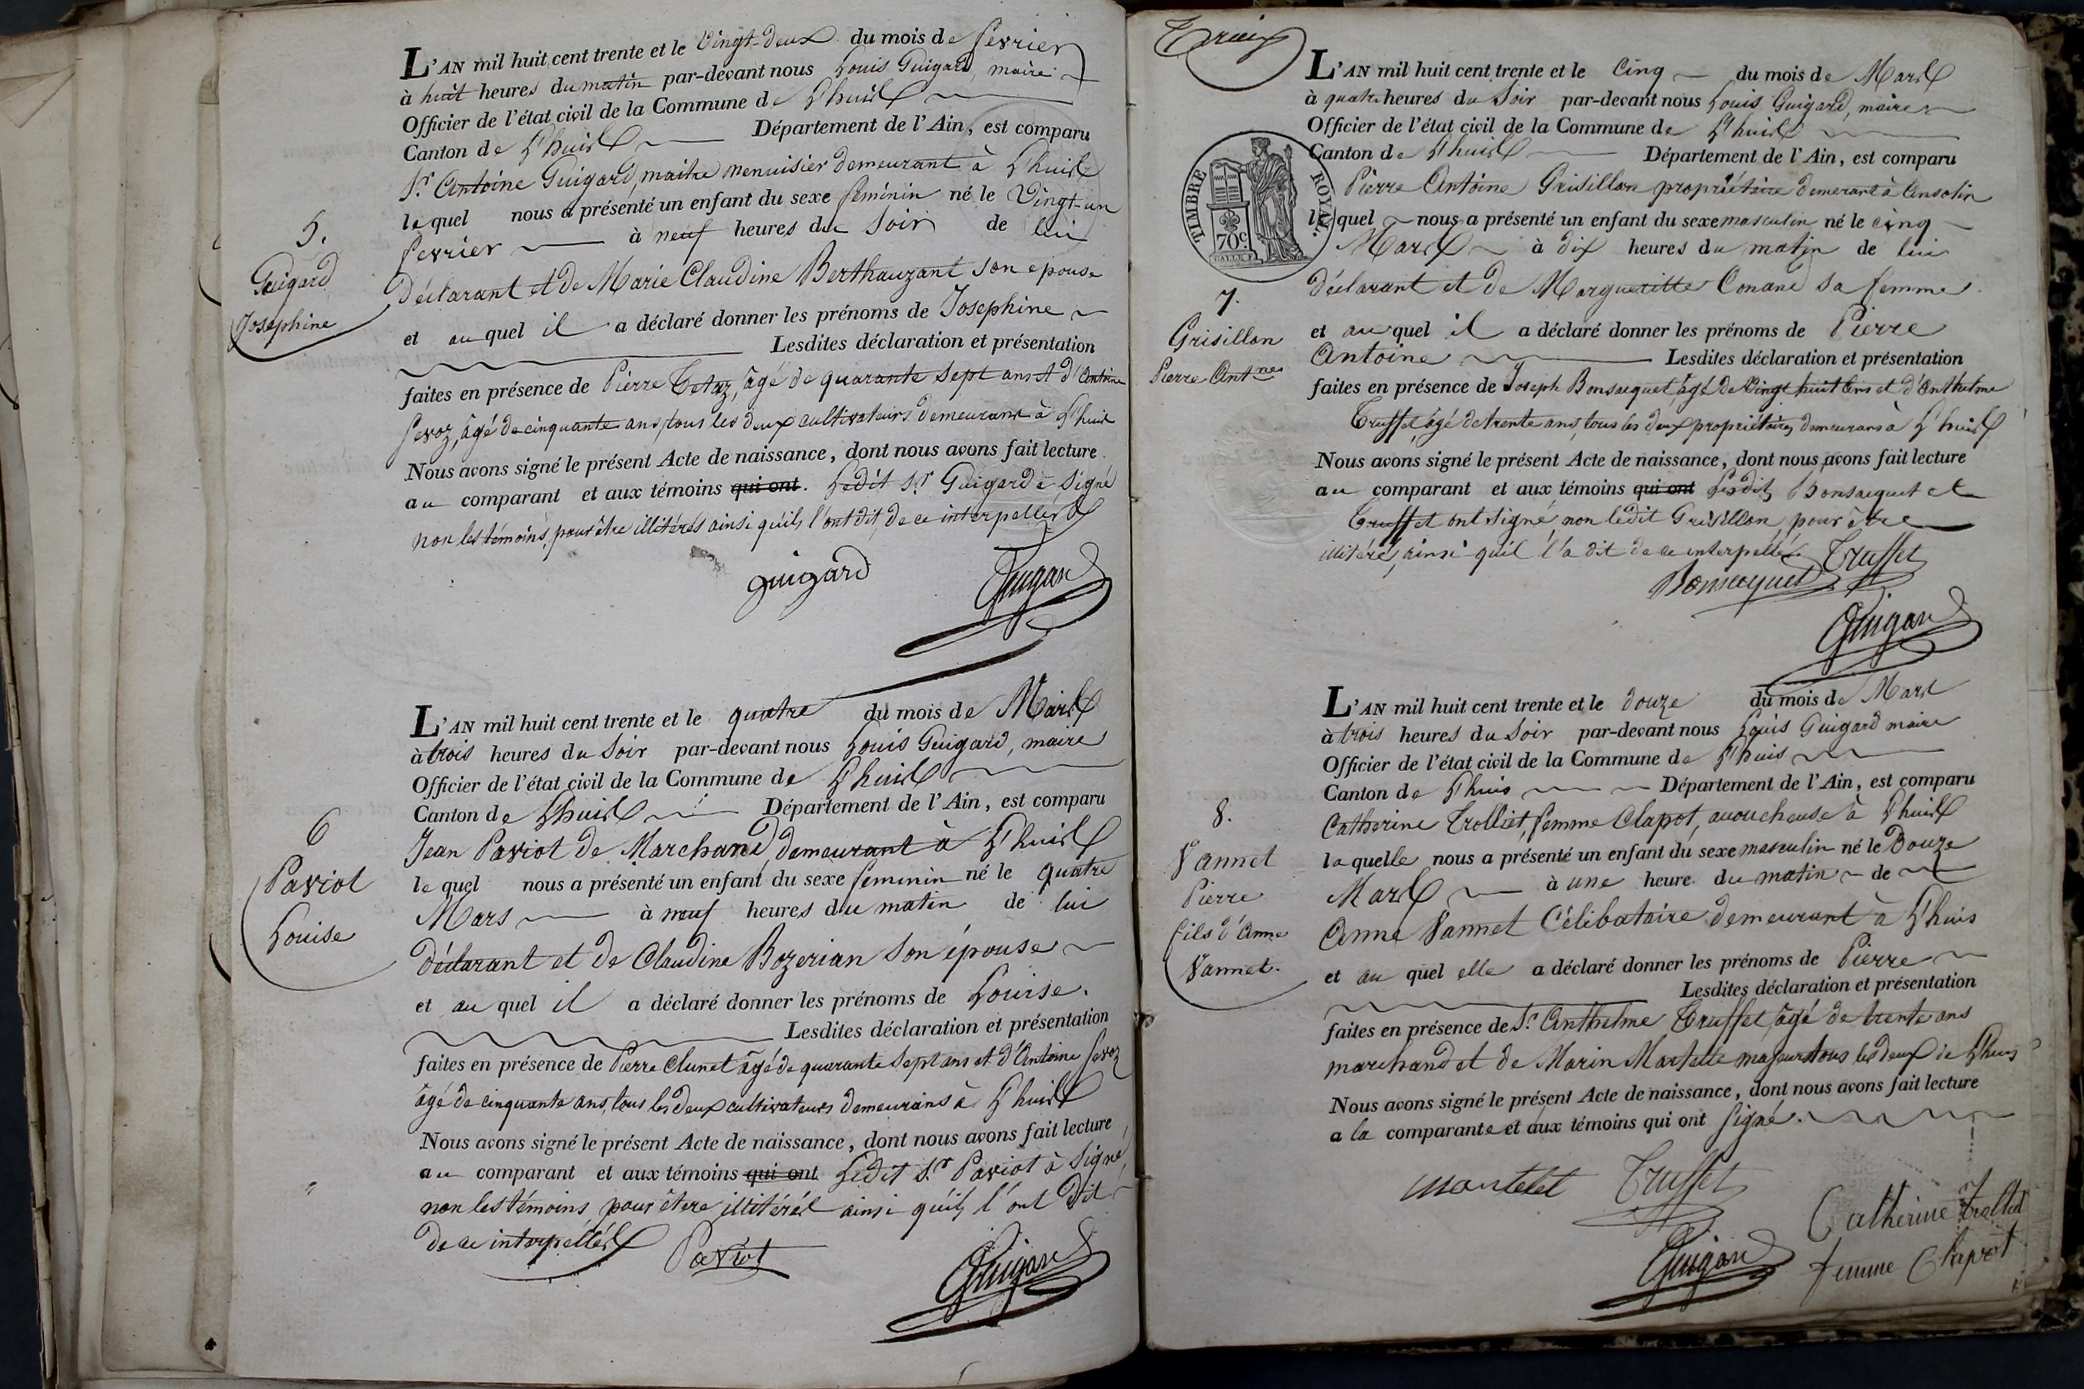 L'AN mil huit cent trente et le Vingt-deux du mois de fevrier
à huit heures du matin par-devant nous Louis Guigard, maire
Officier de l'état civil de la Commune de L'huis
Canton de L'huis Département de l'Ain, est comparu
Sr. Antoine Guigard, maitre menuisier demeurant à L'huis
le quel nous a présenté un enfant du sexe féminin né le Vingt-un
fevrier à neuf heures du Soir de lui
5.
Guigard
Josephine
Déclarant et de Marie Claudine Berthauzant son epouse
et au quel il a déclaré donner les prénoms de Josephine
Lesdites déclaration et présentation
faites en présence de Pierre âgé de quarante Sept ans et d'Antoine
fevoz, âgé de cinquante ans, tous les deux cultivateurs demeurant à L'huis
Nous avons signé le présent Acte de naissance, dont nous avons fait lecture
au comparant et aux témoins qui ont. Ledit Sr. Guigard à Signé
non les témoins, pour être illitérés ainsi qu'ils l'ont dit, de ce interpellés
guigard Guigard
L'AN mil huit cent trente et le quatre du mois de Mars
à trois heures du Soir par-devant nous Louis Guigard, maire
Officier de l'état civil de la Commune de L'huis
Canton de L'huis Département de l'Ain, est comparu
Jean Paviot de Marchand, demeurant à L'huis
le quel nous a présenté un enfant du sexe feminin né le quatre
Mars à neuf heures du matin de lui
6
Paviot
Louise
Déclarant et de Claudine Bozerian son épouse
et au quel il a déclaré donner les prénoms de Louise.
Lesdites déclaration et présentation
faites en présence de Pierre Clunet âgé de quarante Sept ans et d'Antoine fevoz
âgé de cinquante ans, tous les deux cultivateurs demeurans à L'huis
Nous avons signé le présent Acte de naissance, dont nous avons fait lecture
au comparant et aux témoins qui ont Ledit Sr. Paviot à Signé,
non les témoins pour être illitérés ainsi qu'ils l'ont dit
de ce interpellés Paviot
Guigard
L'AN mil huit cent trente et le Cinq du mois de Mars
à quatre heures du Soir par-devant nous Louis Guigard, maire
Officier de l'état civil de la Commune de L'huis
Canton de L'huis Département de l'Ain, est comparu
TIMBRE ROYAL.
70c
Pierre Antoine Grisillon propriétaire demeurant à Ansolin
le quel nous a présenté un enfant du sexe masculin né le cinq
Mars à dix heures du matin de lui
7.
Grisillon
Pierre Antne
Déclarant et de Margueritte Conand sa femme
et au quel il a déclaré donner les prénoms de Pierre
Antoine Lesdites déclaration et présentation
faites en présence de Joseph Bonsacquet, âgé de Vingt huit ans et d'Anthelme
Truffet, âgé de trente ans, tous les deux propriétaires demeurans à L'huis
Nous avons signé le présent Acte de naissance, dont nous avons fait lecture
au comparant et aux témoins qui ont Lesdits Bonsacquet et
Truffet ont signé, non ledit Grisillon, pour être
illitéré, ainsi qu'il l'a dit de ce interpellé. Truffet
Guigard
L'AN mil huit cent trente et le douze du mois de Mars
à trois heures du Soir par-devant nous Louis Guigard maire
Officier de l'état civil de la Commune de L'huis
Canton de L'huis Département de l'Ain, est comparu
Catherine Trolliet, femme Clapot, acoucheuse à L'huis
la quelle nous a présenté un enfant du sexe masculin né le Douze
Mars à une heure du matin de
8.
Vannet
Pierre
fils d'Anne
Vannet.
Anne Vannet Célibataire demeurant à L'huis
et au quel elle a déclaré donner les prénoms de Pierre
Lesdites déclaration et présentation
faites en présence de Sr. Anthelme Truffet, âgé de trente ans
marchand et de Marin Martelle majeur tous les deux de L'huis
Nous avons signé le présent Acte de naissance, dont nous avons fait lecture
a la comparante et aux témoins qui ont Signé.
Truffet
Catherine Trolliet
Guigard femme Clapot